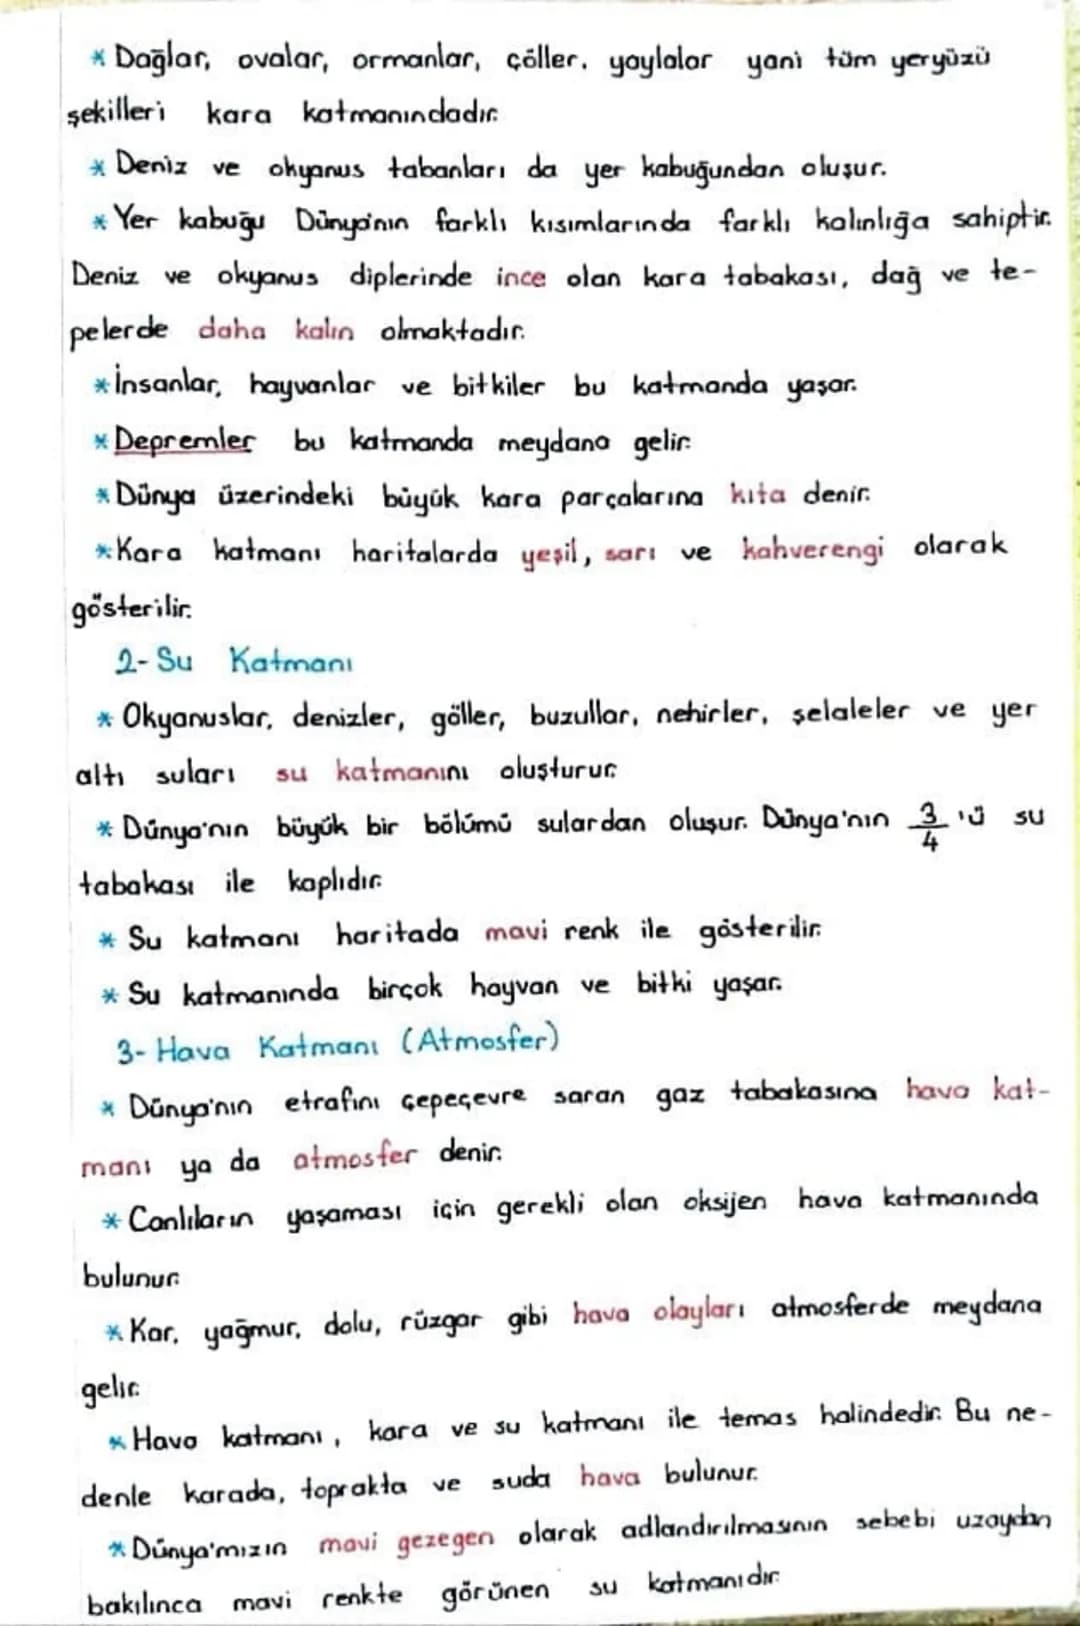 * Dağlar, ovalar, ormanlar, çöller, yaylalar yani tüm yeryüzü
şekilleri kara katmanındadır.
* Deniz ve okyanus tabanları da yer kabuğundan oluşur.
* Yer kabuğu Dünya'nın farklı kısımlarında farklı kalınlığa sahiptir.
Deniz ve okyanus diplerinde ince olan kara tabakası, dağ ve te-
pelerde daha kalın olmaktadır.
* İnsanlar, hayvanlar ve bitkiler bu katmanda yaşar.
* Depremler bu katmanda meydana gelir.
* Dünya üzerindeki büyük kara parçalarına kıta denir.
* Kara katmanı haritalarda yeşil, sarı ve kahverengi olarak
gösterilir.
2- Su Katmanı
* Okyanuslar, denizler, göller, buzullar, nehirler, şelaleler ve yer
altı suları su katmanını oluşturur.
* Dünya'nın büyük bir bölümü sulardan oluşur. Dünya'nın 3/4 'ü su
tabakası ile kaplıdır.
* Su katmanı haritada mavi renk ile gösterilir.
* Su katmanında birçok hayvan ve bitki yaşar.
3- Hava Katmanı (Atmosfer)
* Dünya'nın etrafını çepeçevre saran gaz tabakasına hava kat-
manı ya da atmosfer denir.
* Canlıların yaşaması için gerekli olan oksijen hava katmanında
bulunur.
* Kar, yağmur, dolu, rüzgar gibi hava olayları atmosferde meydana
gelir.
* Hava katmanı, kara ve su katmanı ile temas halindedir. Bu ne-
denle karada, toprakta ve suda hava bulunur.
* Dünya'mızın mavi gezegen olarak adlandırılmasının sebebi uzaydan
bakılınca mavi renkte görünen su katmanıdır.